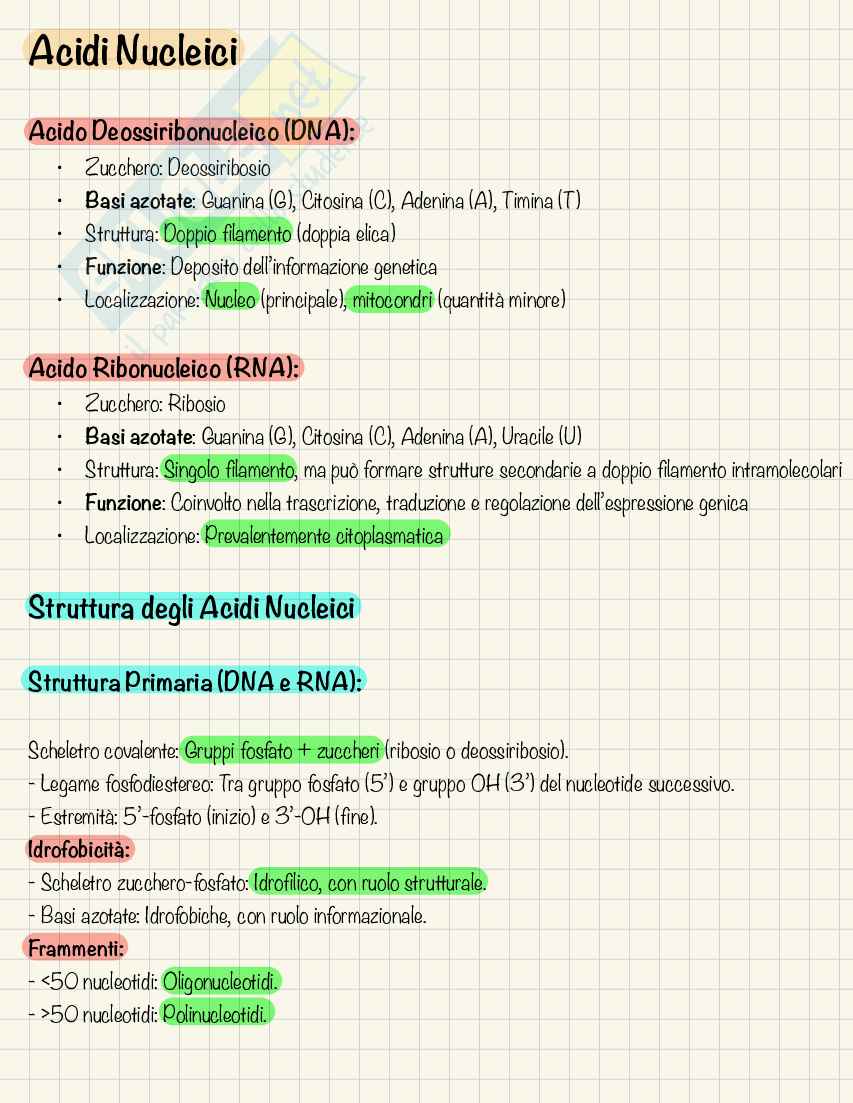 Acidi Nucleici
Acido Deossiribonucleico (DNA):
• Zucchero: Deossiribosio
• Basi azotate: Guanina (G), Citosina (C), Adenina (A), Timina (T)
• Struttura: Doppio filamento (doppia elica)
• Funzione: Deposito dell'informazione genetica
• Localizzazione: Nucleo (principale), mitocondri (quantità minore)
Acido Ribonucleico (RNA):
• Zucchero: Ribosio
• Basi azotate: Guanina (G), Citosina (C), Adenina (A), Uracile (U)
• Struttura: Singolo filamento, ma può formare strutture secondarie a doppio filamento intramolecolari
• Funzione: Coinvolto nella trascrizione, traduzione e regolazione dell'espressione genica
• Localizzazione: Prevalentemente citoplasmatica
Struttura degli Acidi Nucleici
Struttura Primaria (DNA e RNA):
Scheletro covalente: Gruppi fosfato + zuccheri (ribosio o deossiribosio).
- Legame fosfodiestereo: Tra gruppo fosfato (5') e gruppo OH (3') del nucleotide successivo.
- Estremità: 5'-fosfato (inizio) e 3'-OH (fine).
Idrofobicità:
- Scheletro zucchero-fosfato: Idrofilico, con ruolo strutturale.
- Basi azotate: Idrofobiche, con ruolo informazionale.
Frammenti:
- <50 nucleotidi: Oligonucleotidi.
- >50 nucleotidi: Polinucleotidi.